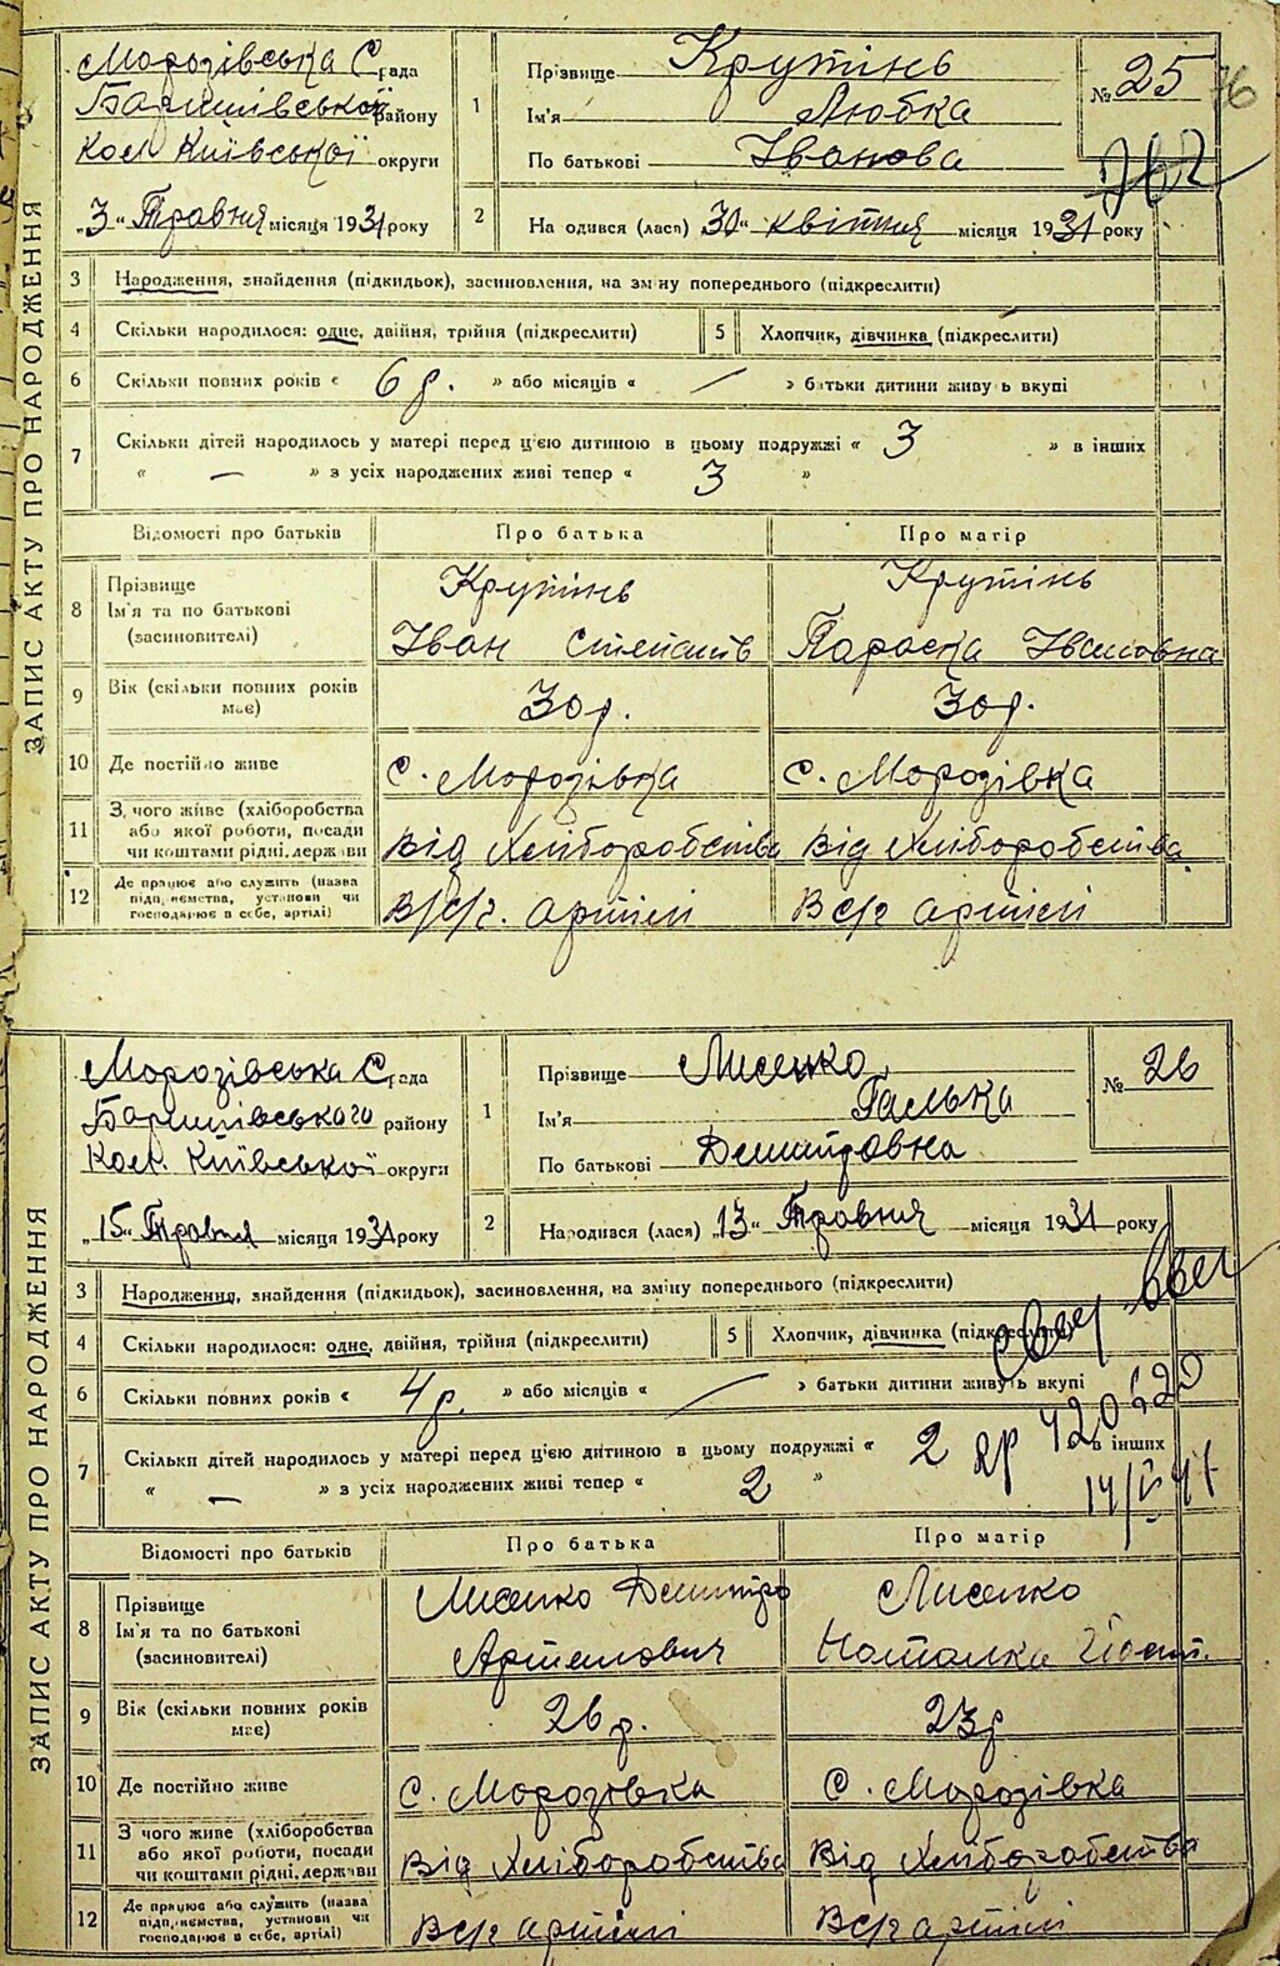 ЗАПИС АКТУ ПРО НАРОДЖЕННЯ
Морозівська С. рада
Баришівського району
кол Київської округи
„3“ Травня місяця 1931 року
1
Прізвище Крутінь
Ім'я Любка
По батькові Іванова
№ 25
76
2
На одився (лась) 30“ квітня місяця 1931 року
3 Народження, знайдення (підкидьок), засиновлення, на зміну попереднього (підкреслити)
4 Скільки народилося: одне, двійня, трійня (підкреслити)
5 Хлопчик, дівчинка (підкреслити)
6 Скільки повних років « 6 р. » або місяців « — » батьки дитини живуть вкупі
7 Скільки дітей народилось у матері перед цією дитиною в цьому подружжі « 3 » в інших
« — » з усіх народжених живі тепер « 3 »
Відомості про батьків Про батька Про матір
8 Прізвище
Ім'я та по батькові
(засиновителі)
Крутінь
Іван Степанів
Крутінь
Параска Івановна
9 Вік (скільки повних років
має)
30 р. 30 р.
10 Де постійно живе с. Морозівка с. Морозівка
11 З чого живе (хліборобства
або якої роботи, посади
чи коштами рідні, держави
Від Хліборобства Від Хліборобства
12 Де працює або служить (назва
підприємства, установи чи
господарює в себе, артілі)
В с/г. артілі В с/г артілі
ЗАПИС АКТУ ПРО НАРОДЖЕННЯ
Морозівська С. рада
Баришівського району
Кол. Київської округи
„15“ Травня місяця 1931 року
1
Прізвище Лисенко
Ім'я Галька
По батькові Демитровна
№ 26
2
Народився (лася) „13“ Травня місяця 1931 року
3 Народження, знайдення (підкидьок), засиновлення, на зміну попереднього (підкреслити)
4 Скільки народилося: одне, двійня, трійня (підкреслити)
5 Хлопчик, дівчинка (підкреслити)
6 Скільки повних років « 4 р. » або місяців « — » батьки дитини живуть вкупі
7 Скільки дітей народилось у матері перед цією дитиною в цьому подружжі « 2 в інших
« — » з усіх народжених живі тепер « 2 »
Відомості про батьків Про батька Про матір
8 Прізвище
Ім'я та по батькові
(засиновителі)
Лисенко Демитро
Артемович
Лисенко
Наталка
9 Вік (скільки повних років
має)
26 р. 23 р
10 Де постійно живе с. Морозівка с. Морозівка
11 З чого живе (хліборобства
або якої роботи, посади
чи коштами рідні, держави
Від Хліборобства Від Хліборобства
12 Де працює або служить (назва
підприємства, установи чи
господарює в себе, артілі)
В с/г артілі В с/г артілі